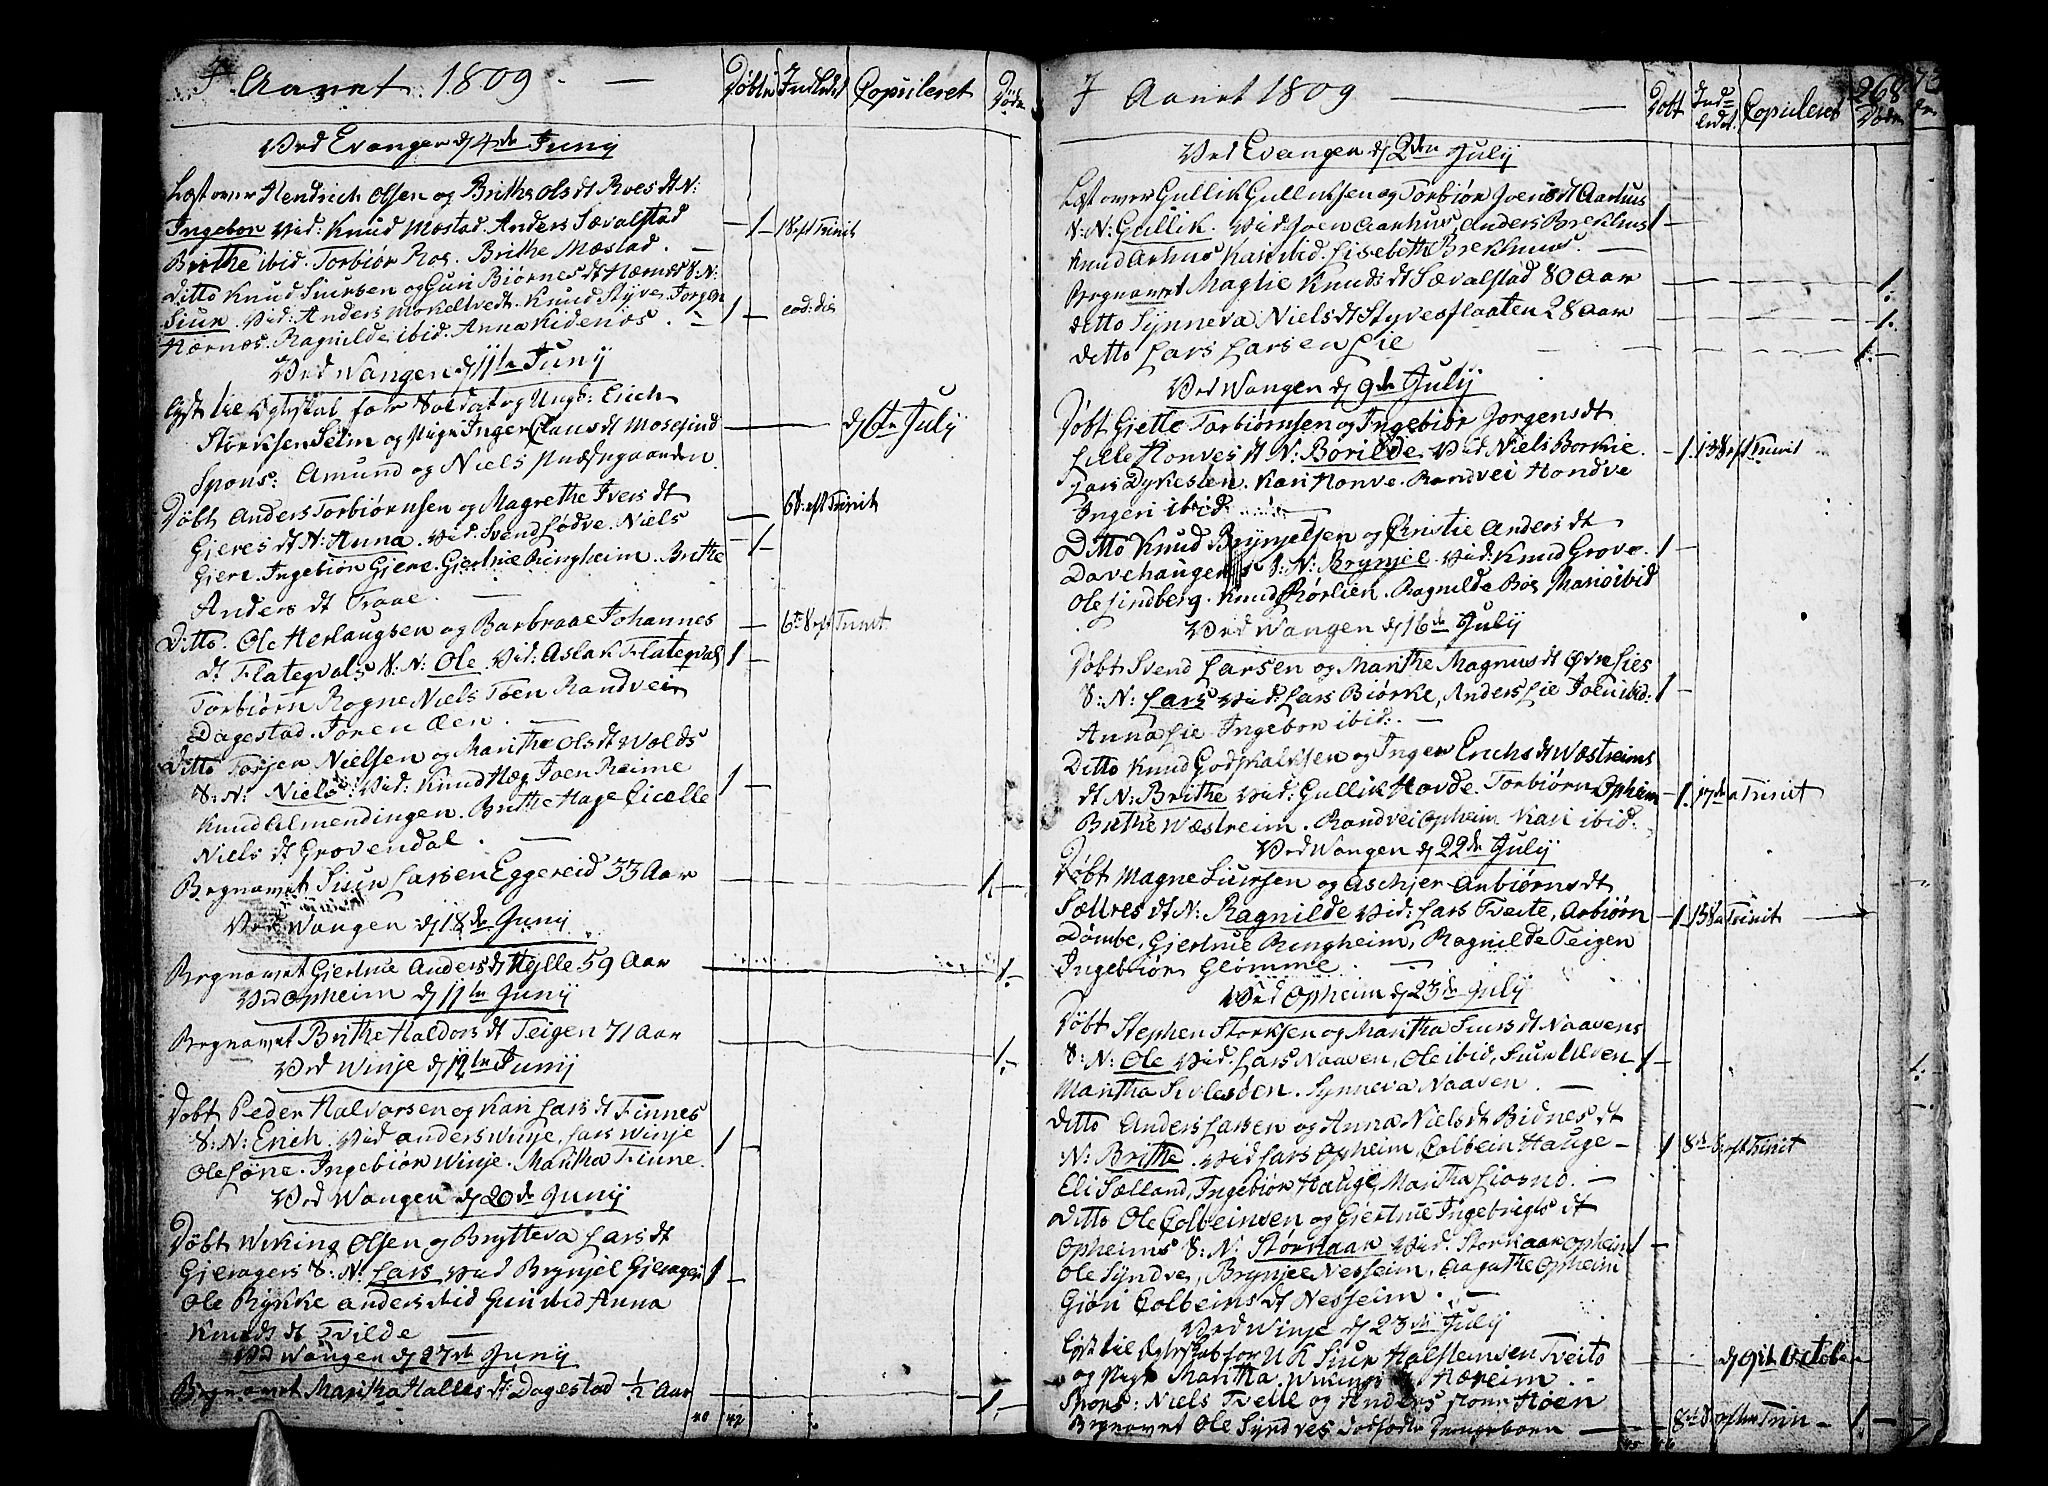 I Aaret 1809
Døbte Indledt Copuleret Døde
Ved Evanger d 4de Junij
Læst over Hendrich Olsen og Brithe Ols dt Roes dt N:
Ingebor Vid: Knud Mæstad. Anders Sævalstad
Brithe ibid. Torbiør Roe. Brithe Mæstad.
1 1 8 eft Trinit
Ditto Knud Siursen og Guri Biørnes dt Hærnes S: N:
Siur. Vid: Anders Mokeltvedt. Knud Styve. Jorgen
Hærnæs. Ragnilde ibid: Anna Kidenæs.
1 eod: die
Ved Wangen d 11te Junij
Lyst til Egteskab for Soldat og Ungk: Erich
Storksen Seim og Pige Inger Claus dt Mosefind
Spons: Amund og Niels Præstegaarden
d 6te July
Døbt Anders Torbiørnsen og Magrethe Ivers dt
Gjeres dt N: Anna. Vid: Svend Lødve. Niels
Gjere. Ingebiør Gjere. Giertrue Ringheim. Brithe
Anders dt Traae.
1 6 S: eft Trinit
Ditto. Ole Herlaugsen og Barbraae Johannes
dt Flateqvals S: N: Ole. Vid: Aslak Flateqval
Torbiørn Rogne Niels Toen Randvei
Dagestad. Joren Æen.
1 6te S eft Trinit
Ditto Torjer Nielsen og Maritha Ols dt Wolds
S: N: Niels. Vid: Knud Hæg Joen Reime
Knud Almendingen. Brithe Hage Cicelle
Niels dt Grovendal.
1
Begravet Siur Larsen Eggereid 33 Aar
1
Ved Wangen d 18de Junij
Begravet Giertrue Anders dt Hylle 59 Aar
1
Ved Opheim d 11te Junij
Begravet Brithe Haldors dt Teigen 71 Aar
1
Ved Winje d 12te Junij
Døbt Peder Halvorsen og Kari Lars dt Finnes
S: N: Erich. Vid anders Winje, Lars Winje
Ole Løne. Ingebiør Winje. Maritha Finne.
1
Ved Wangen d 20de Junij
Døbt Wiking Olsen og Brytteva Lars dt
Gjeragers S: N: Lars Vid Brynjel Gjerager
Ole Rykke anders ibid Guri ibid Anna
Knuds dt Tvilde
1
Ved Wangen d 27de Junij
Begravet Maritha Halles dt: Dagestad ½ Aar
1
40 42
I Aaret 1809
268
Døbt Indledet. Copuleret Døde
Ved Evanger d 2den Julij
Læst over Gullik Gulliksen og Torbiør Joens dt Aarhus
S: N: Gullik. Vid: Joen Aarhus, Anders Brekhus
Knud Arhus Kari ibid. Lisebeth Brekhus.
1
Begravet Magtle Knuds dt Sævalstad 80 Aar
1
ditto Synneva Niels dt Styvesflaaten 28 Aar
1
ditto Lars Larsen Lie
1
Ved Wangen d 9de Julij
Døbt Gjetle Torbiørnsen og Ingebiør Jorgens dt
Lille Honves dt N: Borilde. Vid Niels Borkie.
Lars Dykesten. Kari Honve. Randvei Hondve
Ingeri ibid.
1. 13 S eft Trinit
Ditto Knud Brynjelsen og Christie Anders dt
Davehaugens S: N: Brynjel. Vid: Knud Grove.
Ole Lindberg. Knud Rørlien. Ragnilde Bøe Mari ibid
1
Ved Wangen d 16de Julij
Døbt Svend Larsen og Marithe Magnus dt Øvre Lies
S: N: Lars Vid: Lars Biørke, Anders Lie Joen ibid:
Anna Lie Ingebor ibid:
1
Ditto Knud Godskalksen og Inger Erichs dt Wæstreims
dt N: Brithe Vid: Gullik Hovde. Torbiørn Opheim
Brithe Wæstreim. Randvei Opheim Kari ibid.
1. 17de a Trinit
Ved Wangen d 22de Julij
Døbt Magne Siursen og Aschjer Anbiørns dt
Sættres dt N: Ragnilde Vid: Lars Tveite, Arbiørn
Dømbe, Giertrue Ringheim, Ragnilde Teigen
Ingebiør Glømme
1 15 S a Trinit
Ved Opheim d 23de Julij
Døbt Stephen Storksen og Maritha Siurs dt Naavens
S: N: Ole Vid Lars Naaven, Ole ibid, Siur Ulven
Maritha Sivlesøen. Synneva Naaven
1
Ditto Anders Larsen og Anna Niels dt Bidnes dt
N: Brithe. Vid Lars Opheim, Colbein Hauge
Eli Sælland, Ingebiør Hauge, Maritha Liosno.
1 8de S eft Trinit
Ditto Ole Colbeinsen og Giertrue Ingebrigts dt
Opheims S: N: Størkaar Vid. Storkaar Opheim
Ole Syndve, Brynjel Nesheim, Aagathe Opheim
Giøri Colbeins dt Nesheim.
1
Ved Winje d 23de Julij
Lyst til Egteskab for UK Siur Halstensen Tveito
og Pige Maritha Wikings dt Hæreim.
Spons: Niels Tvelle og Anders Høen
d 9de October
Begravet Ole Syndves dødfødte Drengebarn
8de S eft Trin 1